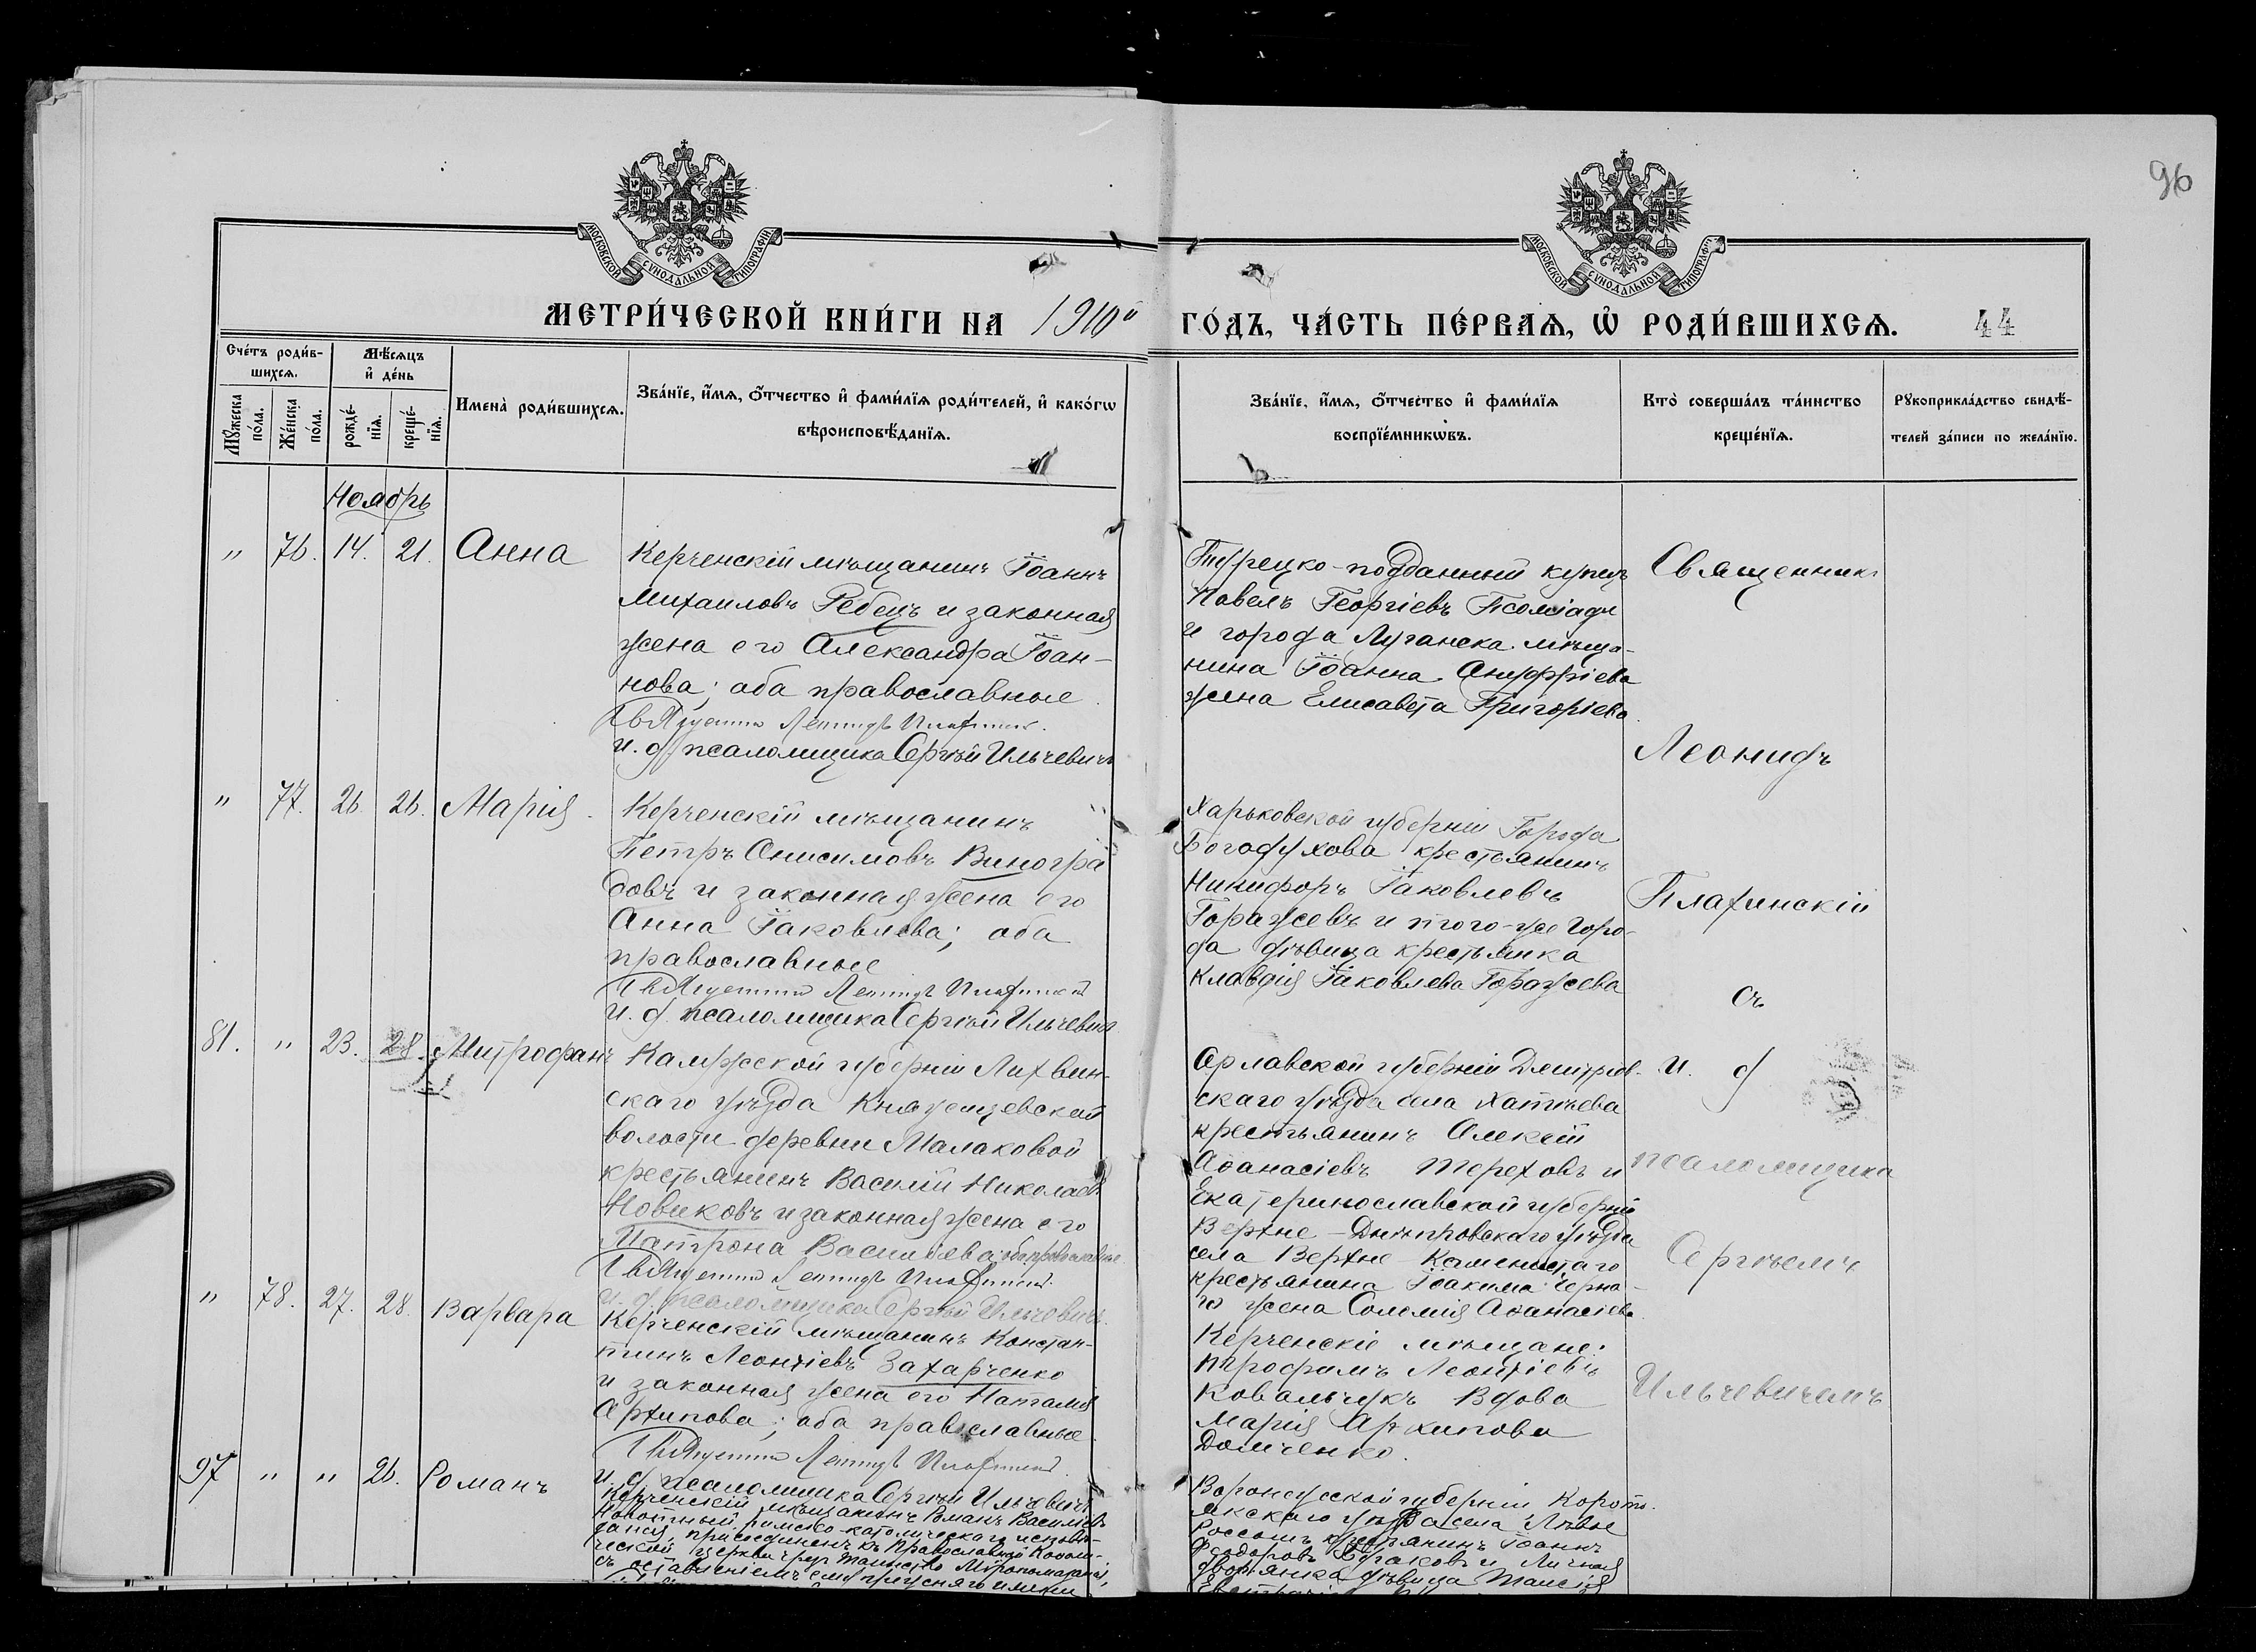 96
МОСКОВСКОЙ СѴНОДАЛЬНОЙ ТИПОГРАФІИ
МОСКОВСКОЙ СѴНОДАЛЬНОЙ ТИПОГРАФІИ
МЕТРИ́ЧЕСКОЙ КНИ́ГИ НА 1910 ГО́ДЪ, ЧА́СТЬ ПЕ́РВАѦ, Ѡ РОДИ́ВШИХСѦ. 44
Сче́тъ роди́в-
шихсѧ.
Мѣ́сѧцъ
и҆ де́нь
Мꙋ́жеска
по́ла.
Же́нска
по́ла.
рожде́-
нїѧ.
креще́-
нїѧ.
Имена̀ роди́вшихсѧ.
Зва́нїе, и҆́мѧ, ѻ҆́тчество и҆ фами́лїѧ роди́телей, и҆ како́гѡ
вѣроисповѣ́данїѧ.
Зва́нїе, и҆́мѧ, ѻ҆́тчество и҆ фами́лїѧ
воспрїе́мникѡвъ.
Кто̀ соверша́лъ та́инство
креще́нїѧ.
Рꙋкоприкла́дство свидѣ́-
телей за́писи по жела́нїю.
Ноябрь
" 76. 14. 21. Анна
Керченскій мѣщанинъ Іоаннъ
Михаиловъ Ребецъ и законная
жена его Александра Іоан-
нова; оба православные
Священникъ Леонидъ Плахинскій
и. д. псаломщика Сергѣй Ильчевичъ
Турецко-подданный купецъ
Павелъ Георгіевъ Псоміади
и города Луганска мѣща-
нина Іоанна Ануфріева
жена Елисавета Григоріева
Священникъ
Леонидъ
Плахинскій
съ
и. д
псаломщика
Сергѣемъ
Ильчевичемъ
" 77. 26. 26. Марія.
Керченскій мѣщанинъ
Петръ Онисимовъ Виногра
довъ и законная жена его
Анна Іаковлева; оба
православные
Священникъ Леонидъ Плахинскій
и. д. псаломщика Сергѣй Ильчевичъ
Харьковской губерніи Города
Богодухова крестьянинъ
Никифоръ Іаковлевъ
Горажевъ и того-же горо-
да дѣвица крестьянка
Клавдія Іаковлева Горажева
81. " 23. 28. Митрофанъ
Калужской губерніи Лихвин-
скаго уѣзда Княжищевской
волости деревни Малаховой
крестьянинъ Василій Николаевъ
Новиковъ и законная жена его
Матрона Васильева; оба православные
Священникъ Леонидъ Плахинскій
и. д. псаломщика Сергѣй Ильчевичъ
Орловской губерніи Дмитріев-
скаго уѣзда села
крестьянинъ Алексѣй
Аѳанасіевъ Тереховъ и
Екатеринославской губерніи
Верхне-Днѣпровскаго уѣзда
села Верхне-Каменистаго
крестьянина Іоакима Черна-
го жена Соломія Аѳанасіева
" 78. 27. 28. Варвара
Керченскій мѣщанинъ Констан-
тинъ Леонтіевъ Захарченко
и законная жена его Наталія
Архипова; оба православные.
Священникъ Леонидъ Плахинскій
и. д. псаломщика Сергѣй Ильчевичъ
Керченскіе мѣщане:
Трофимъ Леонтіевъ
Ковальчукъ Вдова
Марія Архипова
Домченко.
97 " " 26. Романъ
Керченскій мѣщанинъ Романъ Васильевъ
римско-католическаго исповѣ-
данія, присоединенъ къ Православной Каѳоли-
ческой церкви чрез таинство Мѵропомазанія,
съ оставленіемъ ему прежняго имени
Воронежской губерніи Корото-
якскаго уѣзда села Лѣвые
Россошъ крестьянинъ Іоаннъ
Ѳеодоровъ и Личная
дворянка дѣвица Таисія